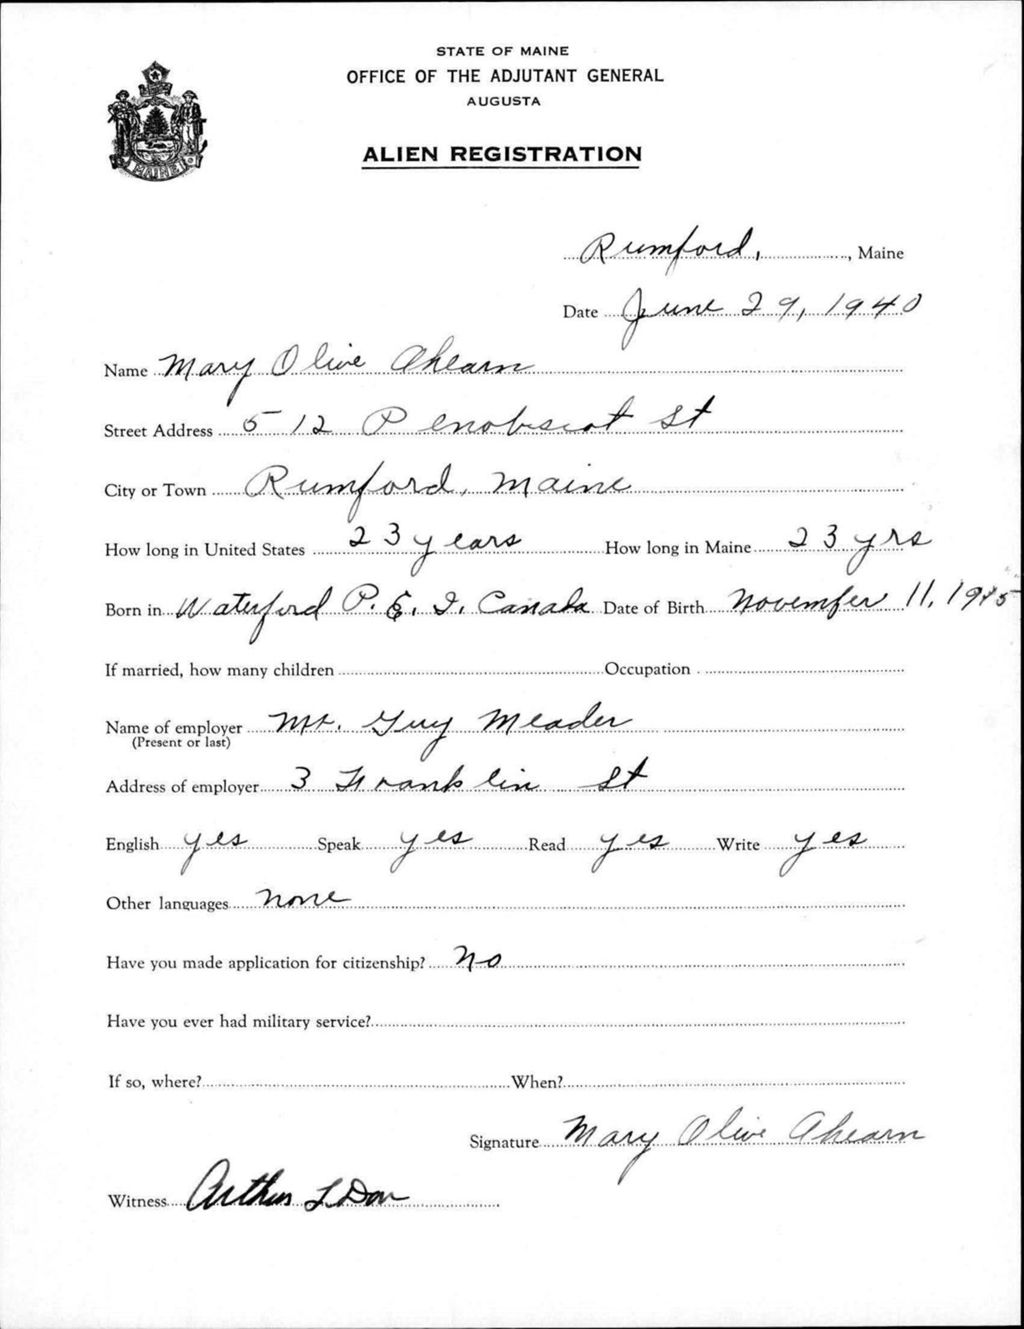 STATE OF MAINE
OFFICE OF THE ADJUTANT GENERAL
AUGUSTA
ALIEN REGISTRATION
MAINE
Rumford, , Maine
Date June 29, 1940
Name Mary Olive Ahearn
Street Address 512 Penobscot St
City or Town Rumford, Maine
How long in United States 23 years How long in Maine 23 yrs
Born in Waterford P. E. I. Canada Date of Birth November 11,
If married, how many children Occupation
Name of employer Mr. Guy Meader
(Present or last)
Address of employer 3 Franklin St
English yes Speak yes Read yes Write yes
Other languages none
Have you made application for citizenship? No
Have you ever had military service?
If so, where? When?
Signature Mary Olive Ahearn
Witness Arthur L